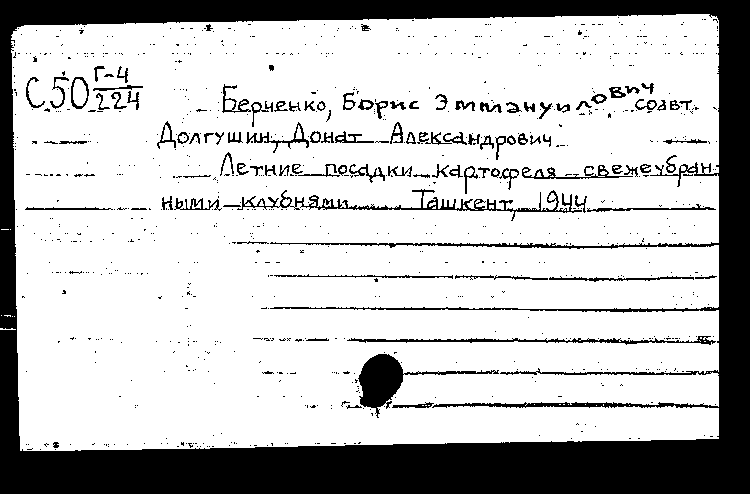 С50 Г-4/224
Берченко, Борис Эммануилович соавт.
Долгушин, Донат Александрович
Летние посадки картофеля свежеубран-
ными клубнями Ташкент, 1944